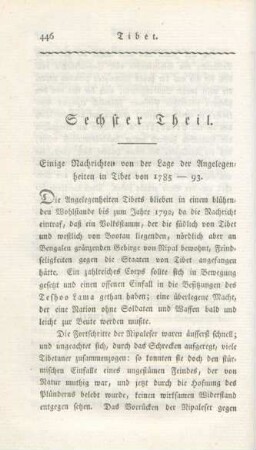 446 Tibet.
Sechster Theil.
Einige Nachrichten von der Lage der Angelegen-
heiten in Tibet von 1785 — 93.
Die Angelegenheiten Tibets blieben in einem blühen-
den Wohlstande bis zum Jahre 1792, da die Nachricht
eintraf, daß ein Volksstamm, der die südlich von Tibet
und westlich von Butan liegenden, nördlich aber an
Bengalen gränzenden Gebirge von Nipal bewohnt, Feind-
seligkeiten gegen die Staaten von Tibet angefangen
hätte. Ein zahlreiches Corps sollte sich in Bewegung
gesetzt und einen offenen Einfall in die Besitzungen des
Teshoo Lama gethan haben; eine überlegene Macht,
der eine Nation ohne Soldaten und Waffen bald und
leicht zur Beute werden mußte.
Die Fortschritte der Nipaleser waren äusserst schnell;
und ungeachtet sich, durch das Schrecken aufgeregt, viele
Tibetaner zusammenzogen: so konnten sie doch den stür-
mischen Einfalle eines ungestümen Feindes, der von
Natur muthig war, und jetzt durch die Hofnung des
Plünderns belebt wurde, keinen wirksamen Widerstand
entgegen setzen. Das Vorrücken der Nipaleser gegen